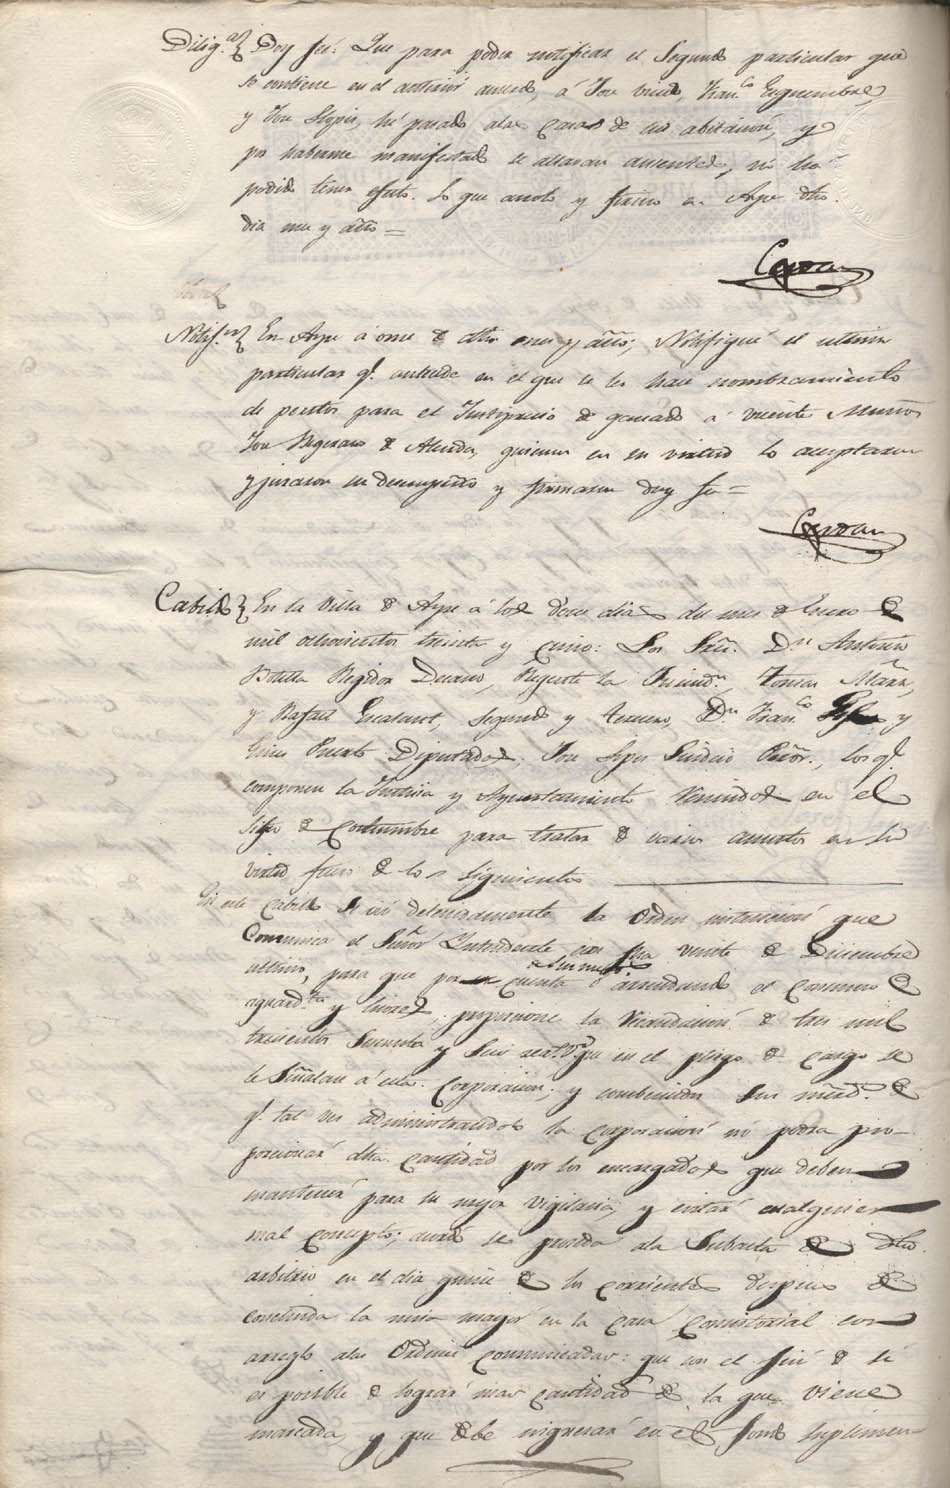 Dilig.ª Doy fé: Que para poder notificar el Segundo particular que
se contiene en el anterior acuerdo, á José Fran.co
y José hé pasado alas casas de su abitacion, y
por haberme manifestado se allavan ausentes, no ha
podido tener efecto. Lo que anoto y firmo en Aspe dho.
dia mes y año =
Cerdan
Notif.n En Aspe á once de dho mes y año; Notifiqué el ultimo
particular q.e antecede en el que se les hace nombramiento
de peritos para el Justiprecio de ganado a Vicente Muños
José de Almeda, quienes en su virtud lo aceptaron
y juraron su desempeño y firmaron doy fe =
Cerdan
Cabildo En la Villa de Aspe á los doce dias del mes de Enero de
mil ochocientos treinta y cinco: Los Sres. D.n Antonio
Botella Regidor Decano, Regente la Jurisd.n, Tomas
y Rafael Escalant, segundo y tercero, D.n Fran.co y
Gines Puerto Diputados, José Sindico Procor., los q.e
componen la Justicia y Ayuntamiento Reunidos en el
sitio de costumbre para tratar de varios asuntos en su
virtud fueron los siguientes
En este cabildo se vió detenidamente la Orden instruccion que
Comunica el Señor Yntendente con fha veinte de Diciembre
ultimo, para que por cuenta ó arrendando el consumo de
aguard.tes y licores proporcione la Recaudacion de tres mil
trescientos y seis real.s v.n que en el pliego de cargo se
le Señalan á esta Corporacion; y combencidos sus mérd.s de
q.e tal vez administrandolo la corporacion no podra pro-
porcionar dha. cantidad por los encargados que deben
mantener para su mejor vigilancia, y evitar cualquier
mal concepto; acordó se proceda ala Subasta de dho.
arbitrio en el dia quince de los corrientes despues de
concluida la misa mayor en la casa Consistorial con
arreglo alas Ordenes comunicadas: que con el fin de si
es posible de lograr mas cantidad de la que viene
marcada, y que debe ingresar en el fondo suplemen-